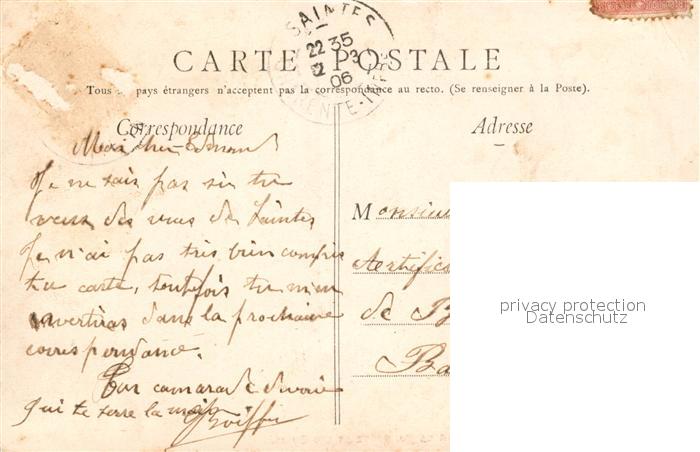 SAINTES
22 35
2 3
06
CARTE POSTALE
Tous pays étrangers n'acceptent pas la correspondance au recto. (Se renseigner à la Poste).
Correspondance
Adresse
Mon cher
Je ne sais pas si tu
veux des vues de Saintes
Je n'ai pas très bien compris
ta carte, toutefois tu m'en
avertiras dans la prochaine
correspondance.
Ton camarade
qui te serre la main
Monsieu
de B
Ba
privacy protection
Datenschutz